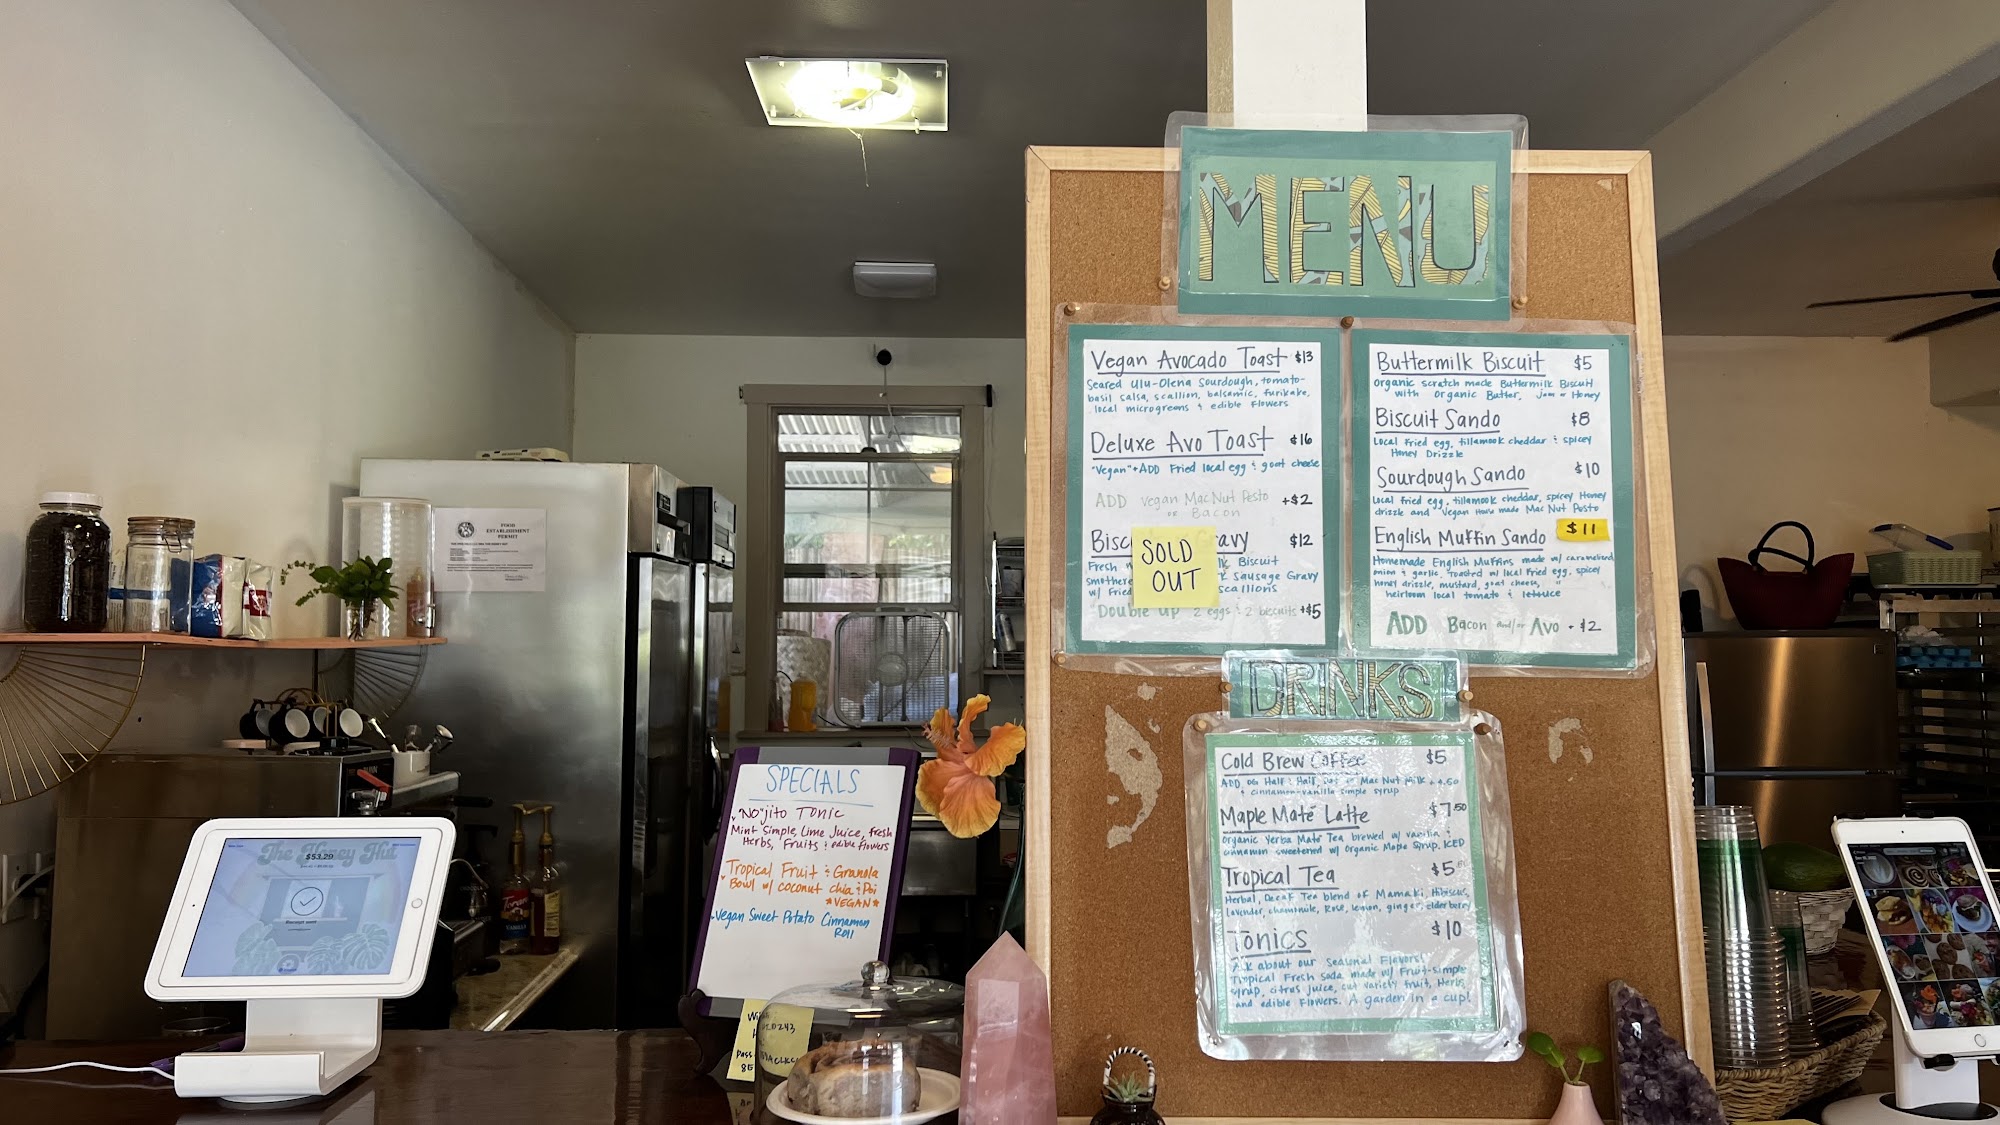 MENU
Vegan Avocado Toast $13
Seared Ulu-Olena Sourdough, tomato-
basil salsa, scallion, balsamic, furikake,
local microgreens & edible flowers
Deluxe Avo Toast $16
"Vegan" + ADD Fried local egg & goat cheese
ADD vegan Mac Nut Pesto +$2
or Bacon
Bisc avy $12
Fresh Biscuit
smothere Sausage Gravy
w/ Fried scallions
Double up 2 eggs & 2 biscuits +$5
SOLD
OUT
Buttermilk Biscuit $5
Organic scratch made Buttermilk Biscuit
with organic Butter, Jam or Honey
Biscuit Sando $8
Local Fried egg, tillamook cheddar & spicey
Honey Drizzle
Sourdough Sando $10
Local fried egg, tillamook cheddar, spicey Honey
drizzle and Vegan House made Mac Nut Pesto
English Muffin Sando $11
Homemade English Muffins made w/ caramelized
onion & garlic, toasted w/ local fried egg, spicey
honey drizzle, mustard, goat cheese,
heirloom local tomato & letouce
ADD Bacon and/or Avo + $2
DRINKS
Cold Brew Coffee $5
ADD OG Half & Half, Oat or Mac Nut Milk +.50
& cinnamon-vanilla simple syrup
Maple Maté Latte $7.50
Organic Yerba Maté Tea brewed w/ vanilla &
cinnamon sweetened w/ Organic Maple Syrup. ICED
Tropical Tea $5.50
Herbal, Decaf Tea blend of Mamaki, Hibiscus,
lavender, chamomile, Rose, lemon, ginger, elderberry
Tonics $10
Ask about our Seasonal Flavors!
Tropical Fresh Soda made w/ Fruit-simple
syrup, citrus juice, cut variety fruit, Herbs
and edible Flowers. A garden in a cup!
SPECIALS
"No"jito Tonic
Mint Simple, Lime Juice, fresh
Herbs, Fruits & edible flowers
Tropical Fruit & Granola
Bowl w/ coconut chia & Poi
*VEGAN*
Vegan Sweet Potato Cinnamon
Roll
FOOD
ESTABLISHMENT
PERMIT
The Honey Hut
$53.29
Receipt sent
Torani
VANILLA